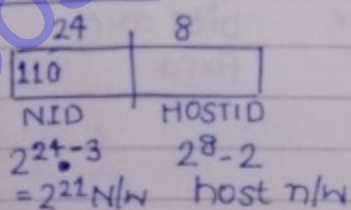 24 8
110
NID HOSTID
2^24-3 2^8-2
=2^21 N/w host n/w